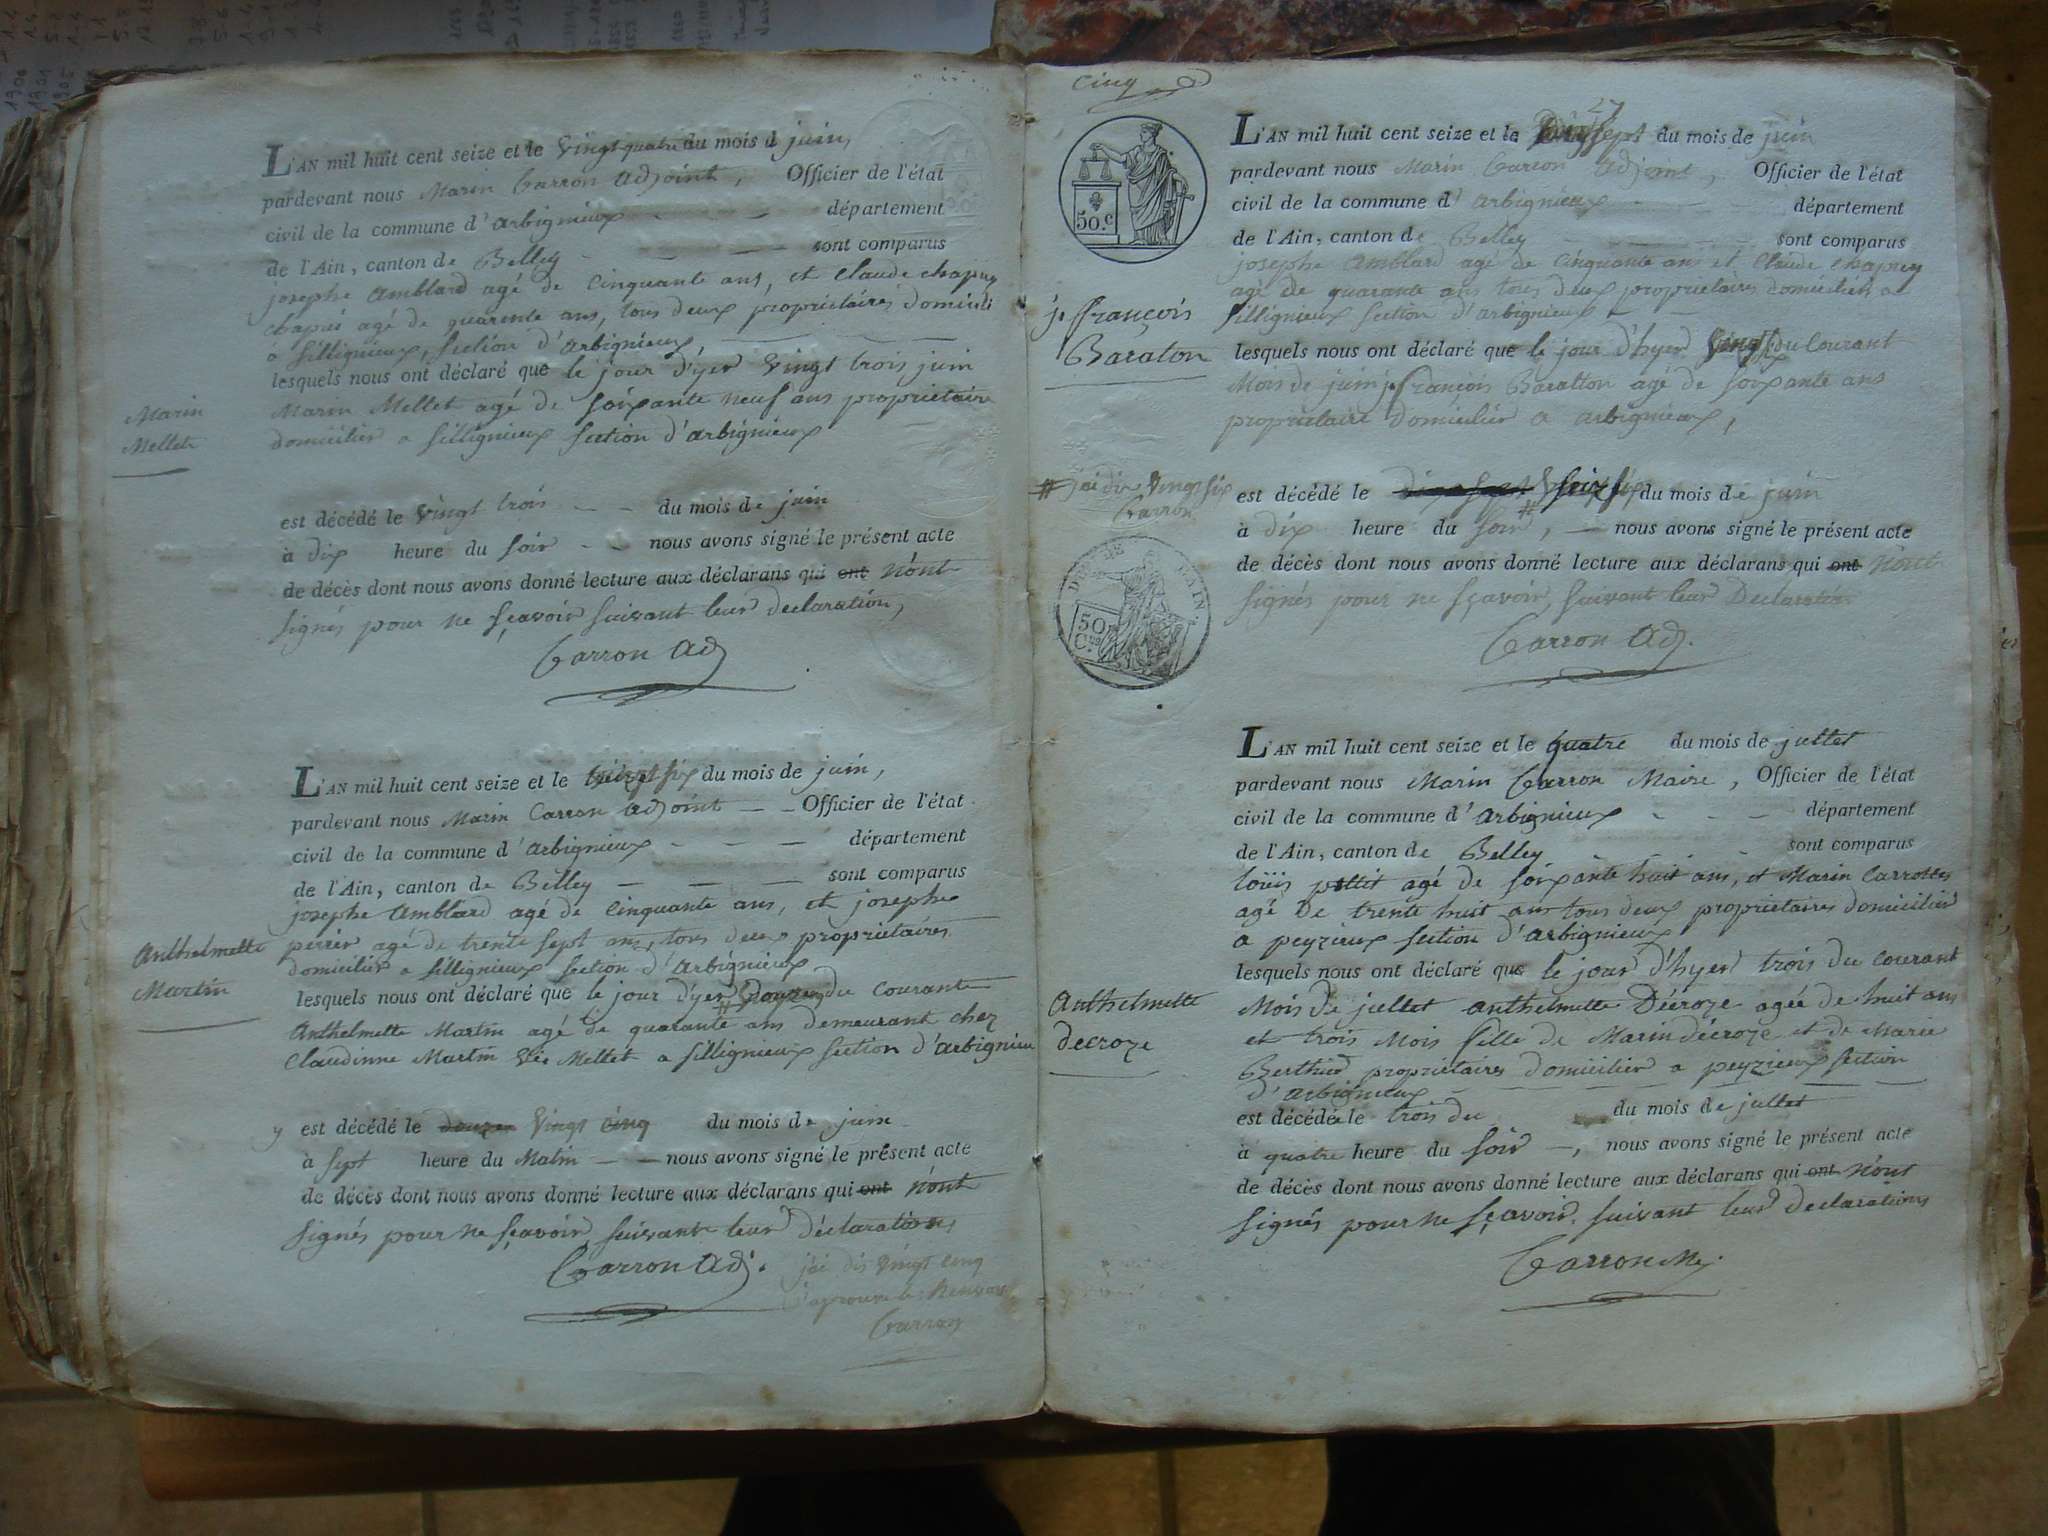 L'AN mil huit cent seize et le Vingt quatre du mois d juin,
pardevant nous Marin Carron adjoint, Officier de l'état
civil de la commune d'arbignieux département
de l'Ain, canton de Belley sont comparus
josephe amblard agé de cinquante ans, et Claude chapuy
chapui agé de quarente ans, tous deux proprietaires domicili
a sillignieux, section d'arbignieux,
lesquels nous ont déclaré que le jour d'yer vingt trois juin
Marin Mellet agé de soixante neuf ans proprietaire
domicilier a sillignieux section d'arbignieux
Marin
Mellet
est décédé le vingt trois du mois de juin
à dix heure du soir nous avons signé le présent acte
de décès dont nous avons donné lecture aux déclarans qui ont n'ont
signés pour ne sçavoir suivant leur declaration,
Carron adj
L'AN mil huit cent seize et le vingt six du mois de juin,
pardevant nous Marin Carron adjoint Officier de l'état
civil de la commune d'arbignieux département
de l'Ain, canton de Belley sont comparus
josephe amblard agé de cinquante ans, et josephe
perrier agé de trente sept ans, tous deux proprietaires
domicilier a sillignieux section d'arbignieux
lesquels nous ont déclaré que le jour d'yer douze du courante
anthelmette Martin agé de quarante ans demeurant chez
Claudinne Martin Vve Mellet a sillignieux section d'arbignieu
anthelmette
Martin
y est décédé le douze vingt cinq du mois de juin
à sept heure du Matin nous avons signé le présent acte
de décès dont nous avons donné lecture aux déclarans qui ont n'ont
signés pour ne sçavoir suivant leur déclarations
Carron adj.
j'ai dis vingt cinq
j'aprouve le Renvoi
Carron
cinq
50.c
L'AN mil huit cent seize et le sept 27 du mois de juin
pardevant nous Marin Carron adjoint, Officier de l'état
civil de la commune d'arbignieux département
de l'Ain, canton de Belley sont comparus
josephe amblard agé de cinquante ans et Claude chapuy
agé de quarante ans tous deux proprietaires domiciliers a
sillignieux section d'arbignieux
j. françois
Baraton
lesquels nous ont déclaré que le jour d'hyer vingt du courant
Mois de juin j. françois Baratton agé de soixante ans
proprietaire domicilier a arbignieux,
# j'ai dix vingt six
Carron
est décédé le dix sept vingt six du mois de juin
à dix heure du soir #, nous avons signé le présent acte
de décès dont nous avons donné lecture aux déclarans qui ont n'ont
signés pour ne sçavoir, suivant leur Declaration
Carron adj.
DE L'AIN
50 C.
L'AN mil huit cent seize et le quatre du mois de jullet
pardevant nous Marin Carron Maire, Officier de l'état
civil de la commune d'arbignieux département
de l'Ain, canton de Belley sont comparus
loüis pettit agé de soixante huit ans, et Marin Carrottes
agé de trente huit ans tous deux proprietaires domicilier
a peyzieux section d'arbignieux
lesquels nous ont déclaré que le jour d'hyer trois du courant
Mois de jullet anthelmette Décroze agée de huit ans
et trois Mois fille de Marin décroze et de Marie
Berthier proprietaires domicilier a peyzieux section
d'arbignieux
anthelmette
decroze
est décédée le trois du du mois de jullet
à quatre heure du soir, nous avons signé le présent acte
de décès dont nous avons donné lecture aux déclarans qui ont n'ont
signés pour ne sçavoir, suivant leur declarations
Carron Me.